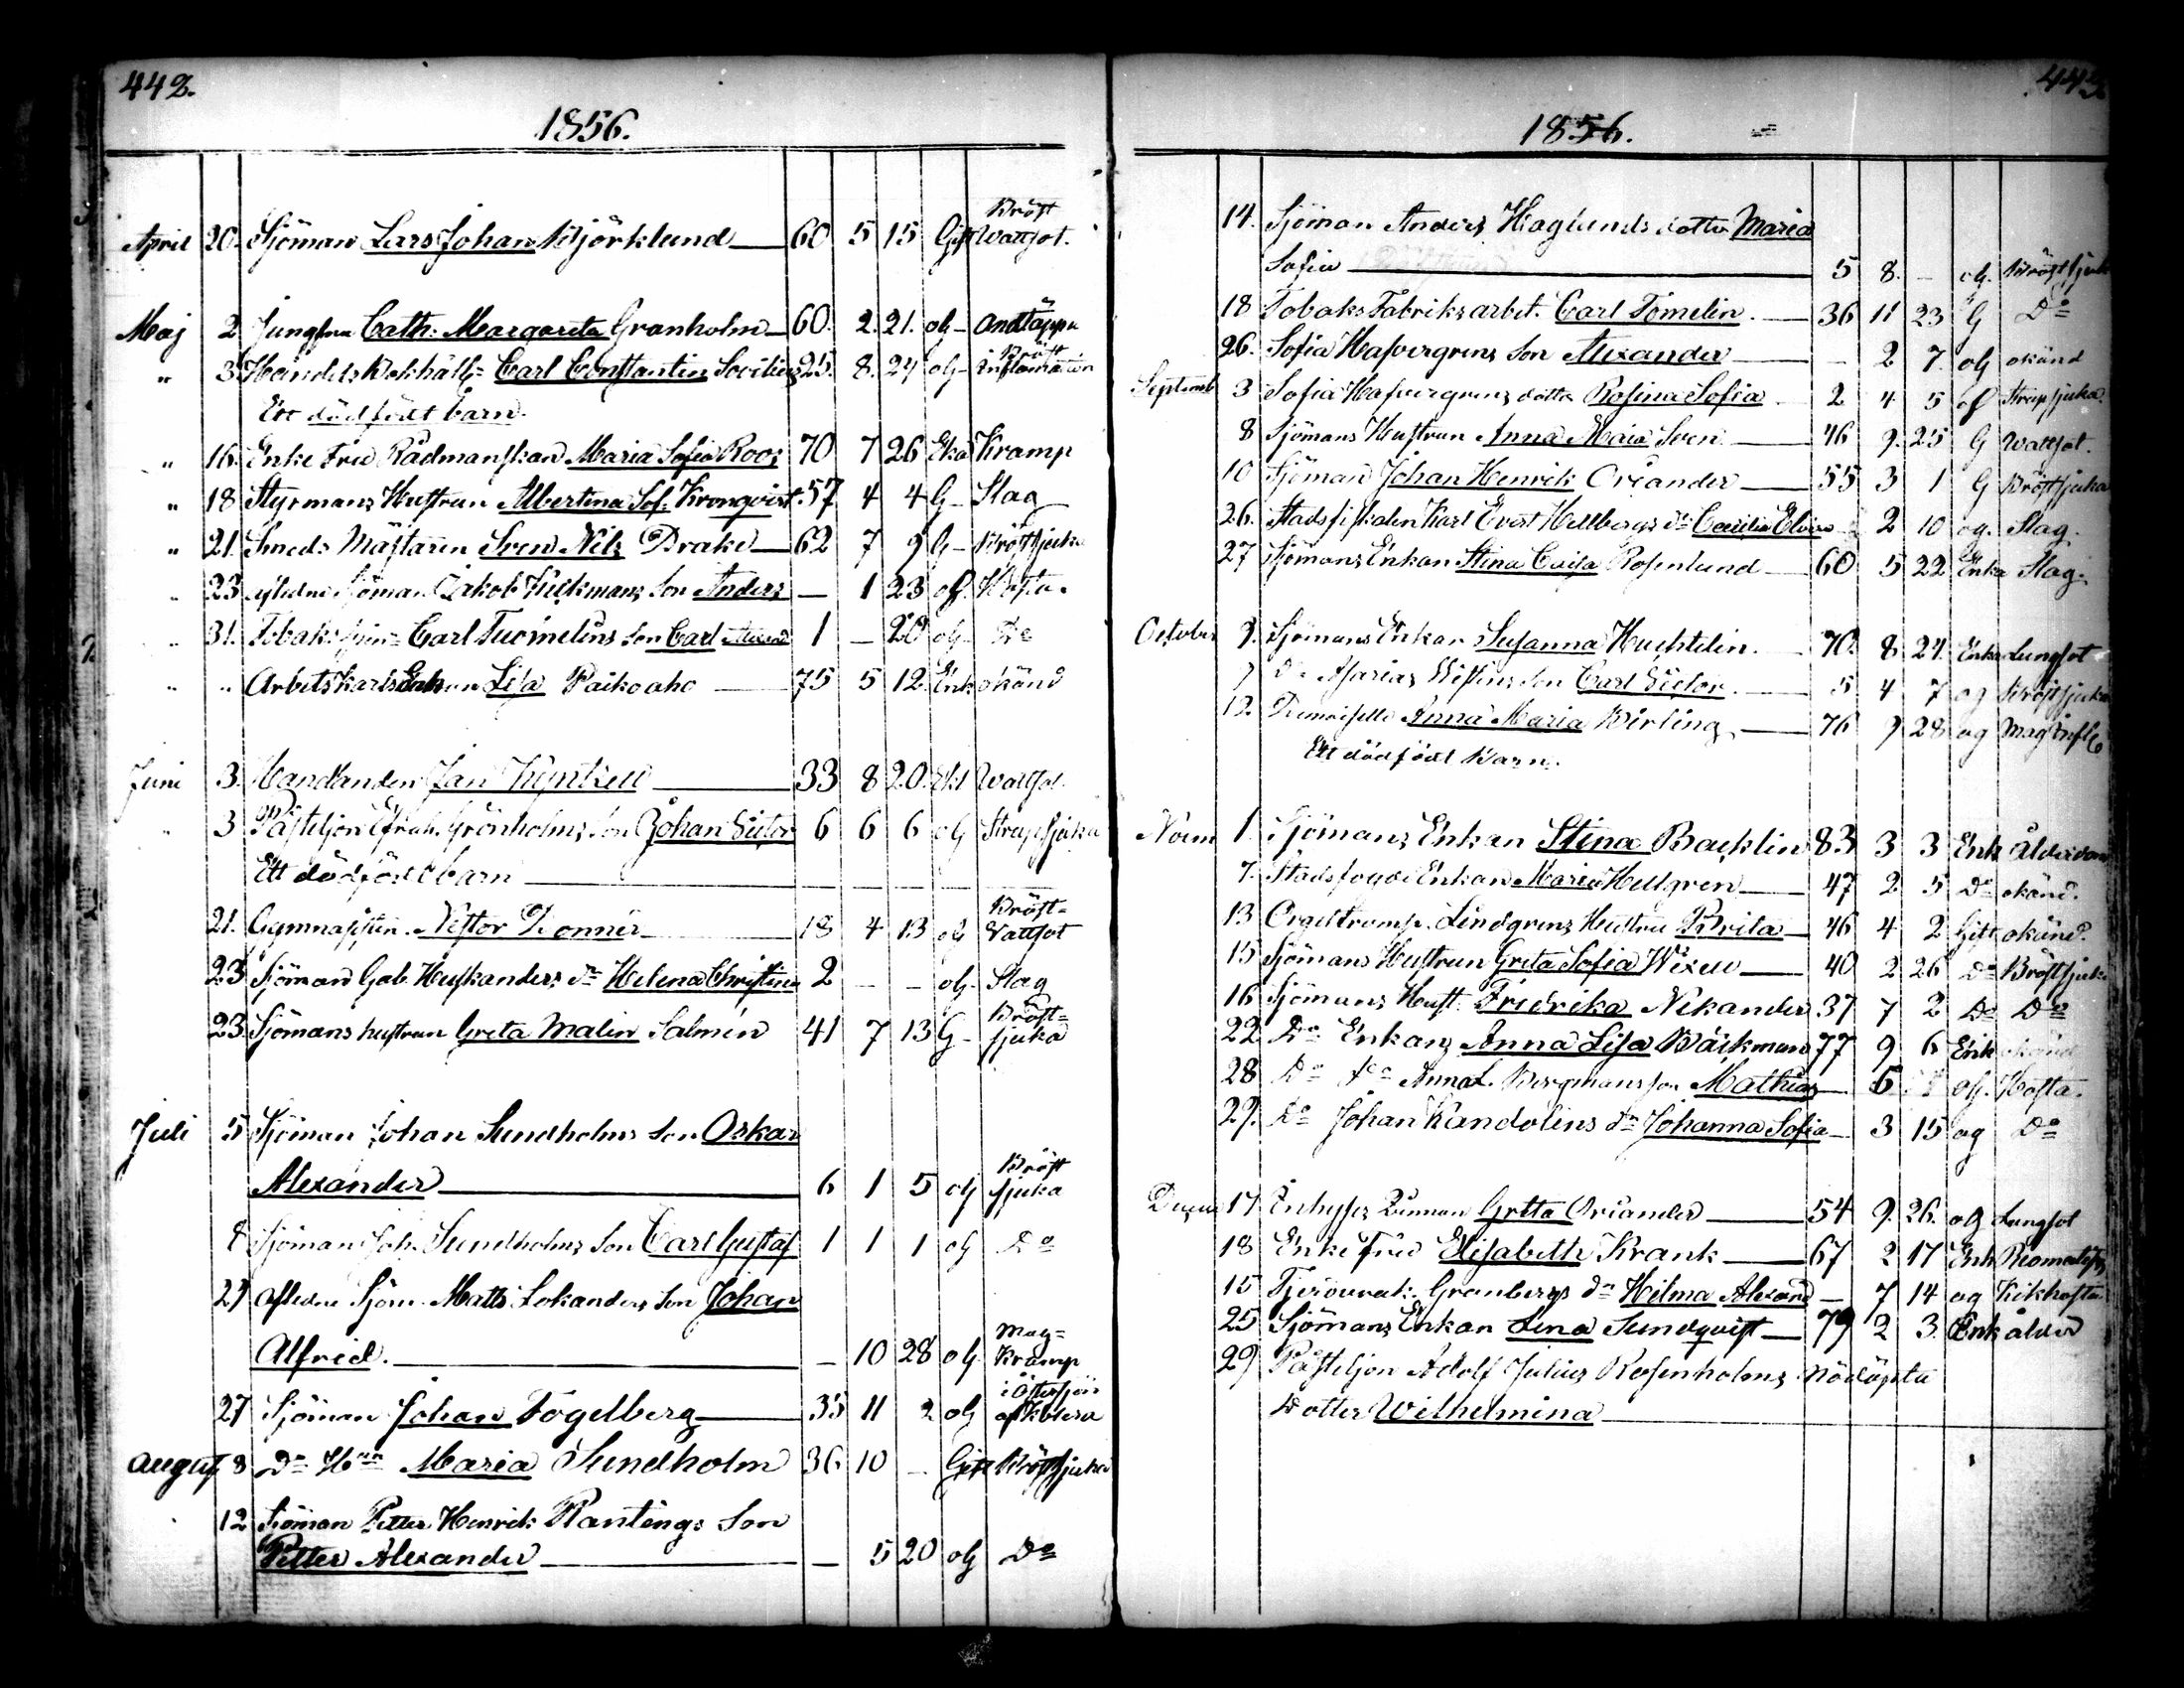 442.
1856.
April 20. Sjöman Lars Johan Björklund 60 5 15 Gift Bröst Wattsot.
Maj 2 Jungfru Cath: Margareta Granholm 60. 2. 21. og Andtäppa
" 3. Handels Bokhåll= Carl Constantin Socilius 25. 8. 24 og Bröst inflamation
Ett dödfödt barn.
" 16. Enke Fru Rådmanskan Maria Sofia Roos 70 7 26 Eka Kramp
" 18 Styrmans Hustrun Albertina Sof. Kronqvist. 57 4 4 G Slag
" 21. Smeds Mästaren Sven Nils Drake 62 7 9 G Bröstsjuka
" 23 aflidne Sjöman Jakob son Anders — 1 23 og. Hosta.
" 31. Tobaks Carl Tuomelins son Carl 1 — 20 og Do
" " Arbetskarls Enkan Lisa Paikoaho 75 5 12 Enk okänd
Juni 3. Handlanden Jan 33 8 20. Ekl Wattsot.
" 3 Påsteljon Efrah. Grönholms son Johan Victor 6 6 6 og Strupsjuka
Ett dödfödt barn
21. Gymnasisten Nestor Donner 18 4 13 og Bröst= Vattsot
23 Sjöman Gab. Huskanders dr Helena Christina 2 — — og. Slag
23. Sjömans hustrun Greta Malin Salmén 41 7 13 G Bröst= sjuka
Juli 5 Sjöman Johan Sundholms son Oskar
Alexander 6 1 5 og Bröst sjuka
8 Sjöman Joh. Sundholms son Carl Gustaf 1 1 1 og Do
29 aflidne Sjöm. Matts Lokanders son Johan
Alfrid. — 10 28 og Mag= Kramp
27 Sjöman Johan Fogelberg 35 11 2 og i Östersjön af Kolera
August 8 Do Hun Maria Sundholm 36 10 — Gift Bröstsjuka
12 Sjöman Petter Henrik Plantings son
Petter Alexander — 5 20 og Do
443
1856.
14. Sjöman Anders Haglunds dotter Maria
Sofia 5 8. — og. Bröstsjuka
18 Tobaks Fabriks arbet. Carl Tömelin. 36 11 23 G Do
26. Sofia Hafvergrens son Alexander — 2 7. og okänd
Septemb 3 Sofia Hafvergrens dotter Rosina Sofia 2 4 5 og Strupsjuka.
8 Sjömans Hustrun Anna Maia Sven 46 9. 25 G Wattsot.
10 Sjöman Johan Henrik Oriander 55 3 1 G Bröstsjuka
26. Stadsfiskalen Karl Evert Hellbergs dr Cecilia — 2 10 og. Slag.
27 Sjömans Enkan Stina Caisa Rosenlund 60 5 22 Enka Slag.
October 9. Sjömans Enkan Susanna Huchtelin. 70 8 24. Enka Lungsot
9 Do Marias son Carl Victor. 5 4 7 og Bröstsjuka
12. Demoiselle Anna Maria Birling 76 9 28 og Mag infl
Ett dödfödt Barn.
Novm 1. Sjömans Enkan Stina Backlin 83 3 3 Enk Ålderdom
7. Stadsfogde Enkan Maria Hellgren 47 2 5 Do okänd.
13 Orgeltramp. Lindgrens Hustru Brita 46 4 2 Gift okänd.
15 Sjömans Hustrun Greta Sofia 40 2 26 Do Bröstsjuka
16 Sjömans Hust. Fredrika Nikander 37 7 2 Do Do
22 Do Enkan Anna Lisa Bäckman 77 9 6 Enk okänd
28 Do Do Anna L. Bergmans son Mathias 6 1 og. Hosta.
29. Do Johan Randolins dr Johanna Sofia — 3 15 og Do
17. Inhyses Qvinnan Gretta Oriander 54 9. 26. og Lungsot
18 Enke Fru Elisabeth Krank 67 2 17 Enk
15 Granbergs dr Hilma Alexand — 7 14 og Kikhosta
25 Sjömans Enkan Lena Sundqvist 79 2 3. Enk ålder
29 Påsteljon Adolf Julius Rosenholms nödöpta
Dotter Wilhelmina